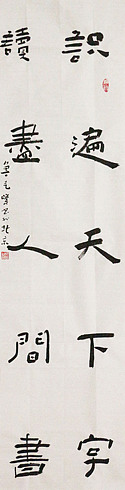 識遍天下字
讀盡人間書